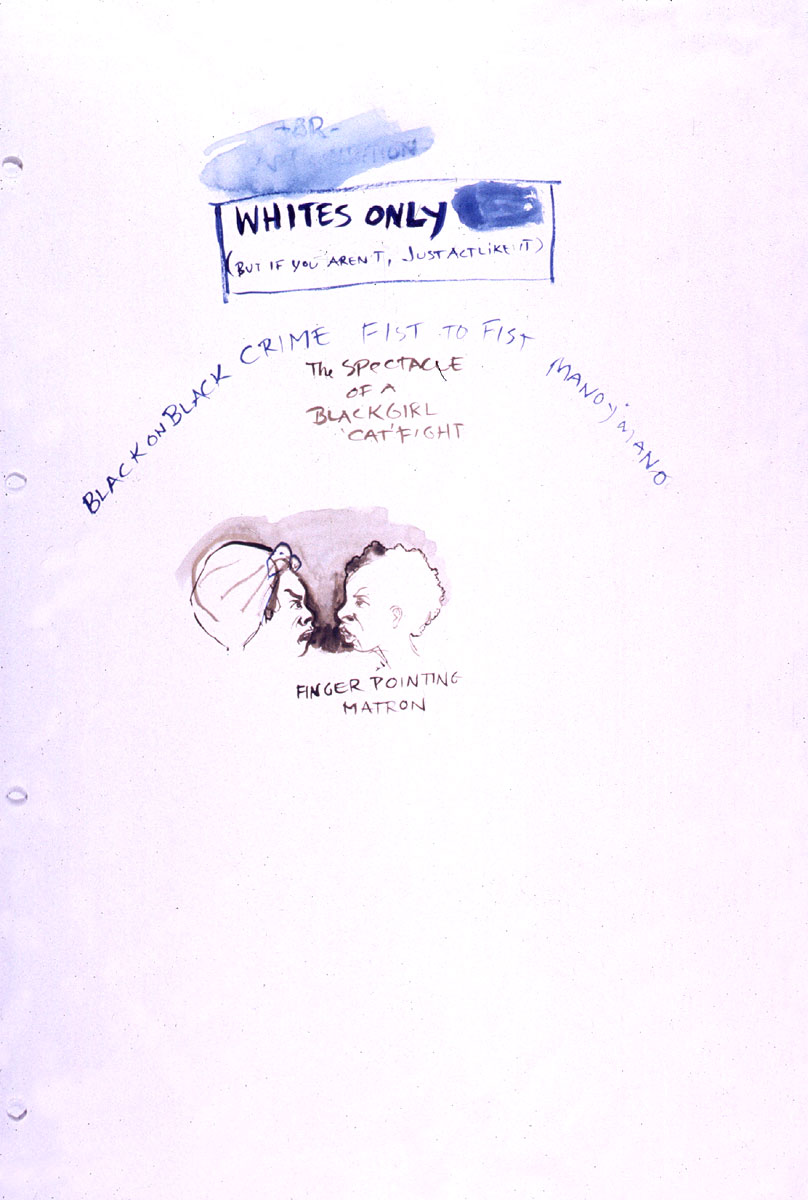 -BR-
WHITES ONLY
(BUT IF YOU AREN'T, JUST ACT LIKE IT)
BLACK ON BLACK CRIME FIST TO FIST MANO y MANO
The SPECTACLE
OF A
BLACKGIRL
'CAT'FIGHT
FINGER POINTING
MATRON